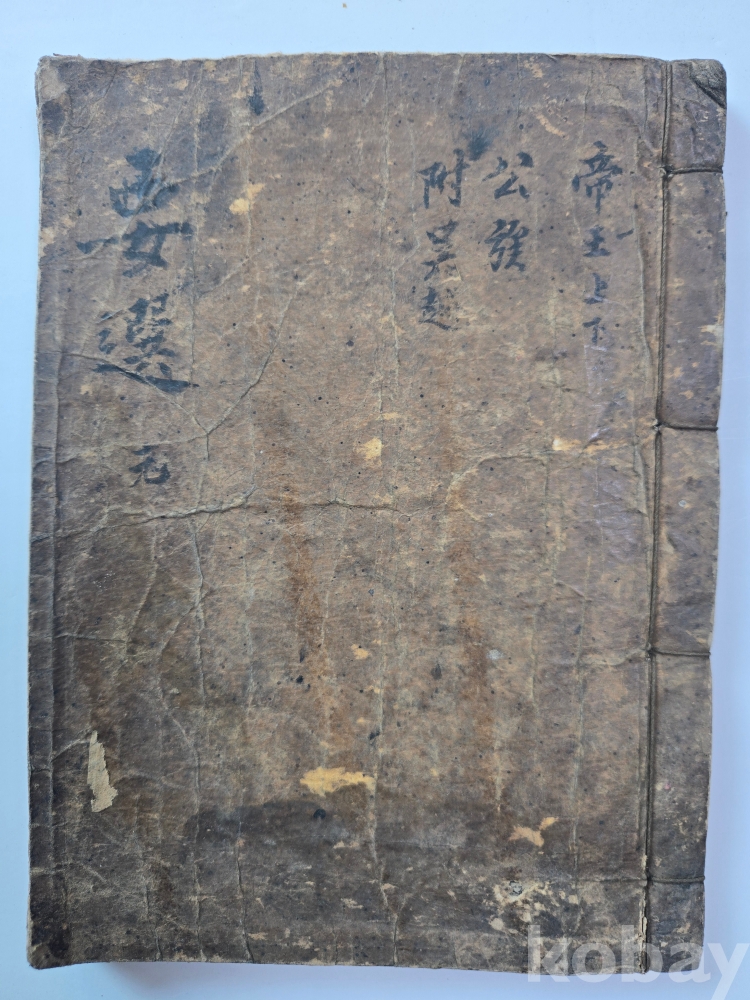 帝王上下
公族
附吳越
要選 元
kobay